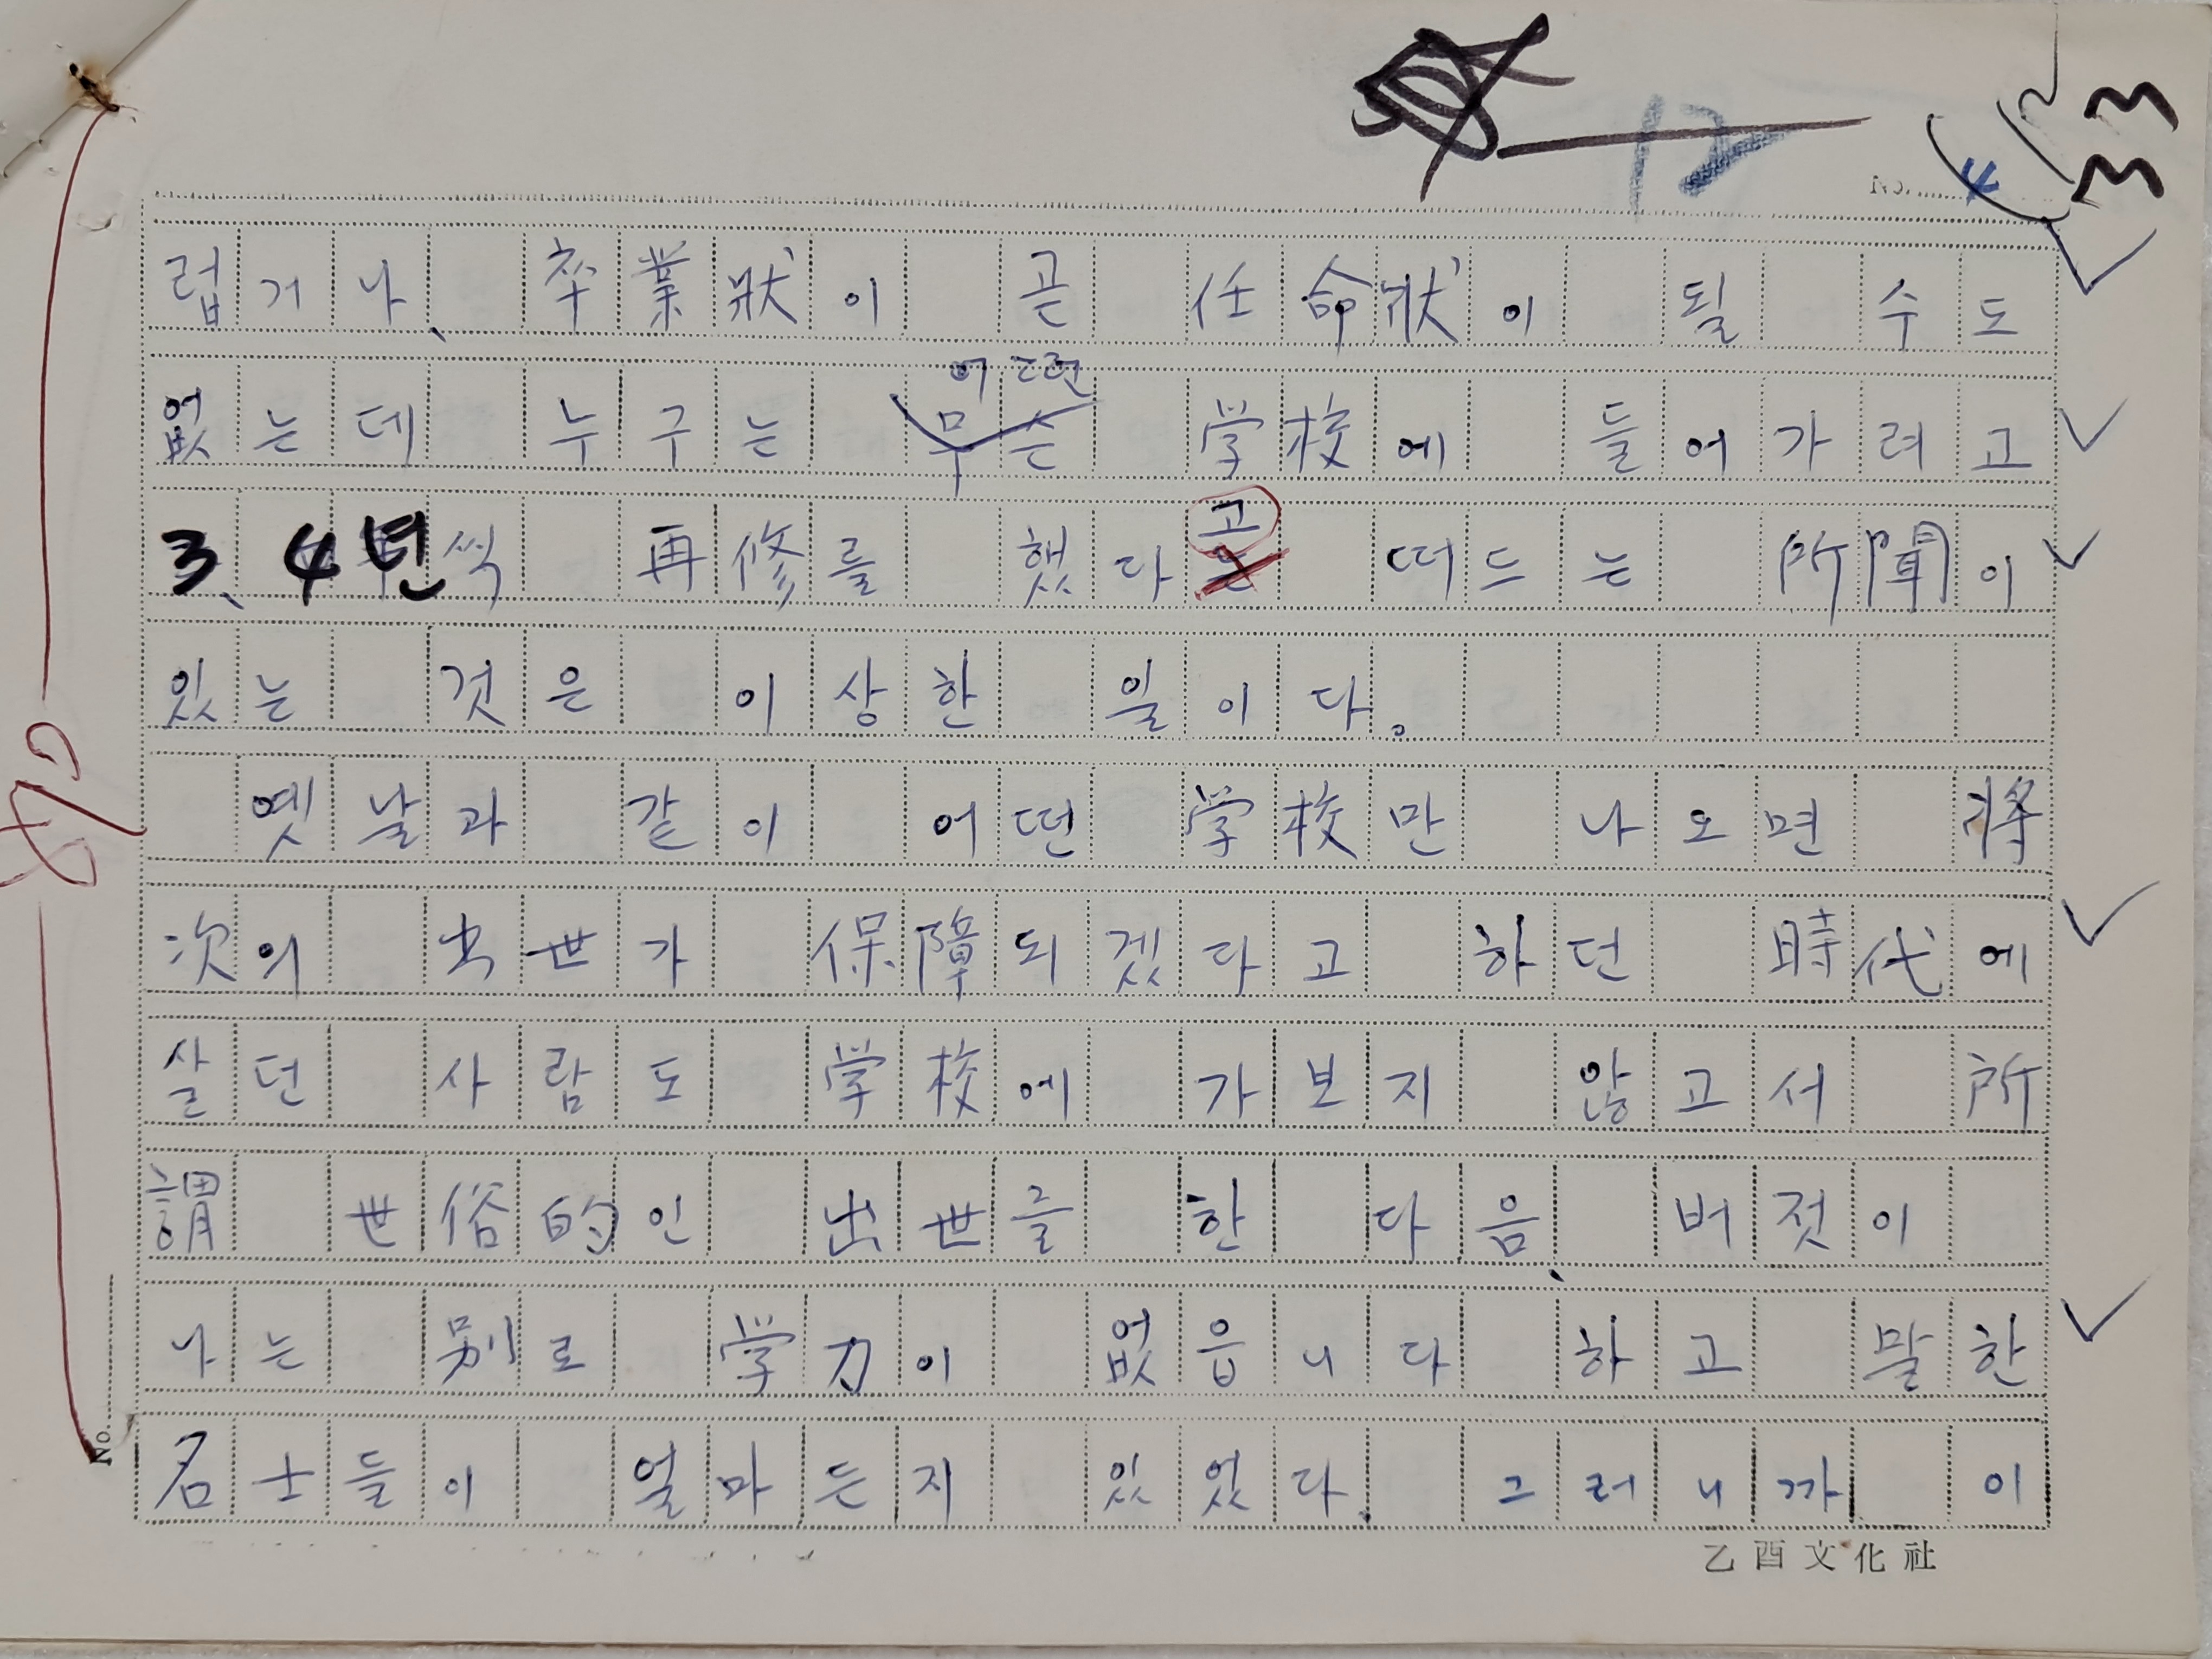 12
4
33
럽거나、 卒業狀이 곧 任命狀이 될 수도
어떤
없는데 누구는 무슨 学校에 들어가려고
고
3、4년씩 再修를 했다는 떠드는 所聞이
있는 것은 이상한 일이다。
옛날과 같이 어떤 学校만 나오면 將
次의 出世가 保障되겠다고 하던 時代에
살던 사람도 学校에 가보지 않고서 所
謂 世俗的인 出世를 한 다음、 버젓이
나는 別로 学力이 없읍니다 하고 말한
名士들이 얼마든지 있었다. 그러니까 이
No.
乙酉文化社